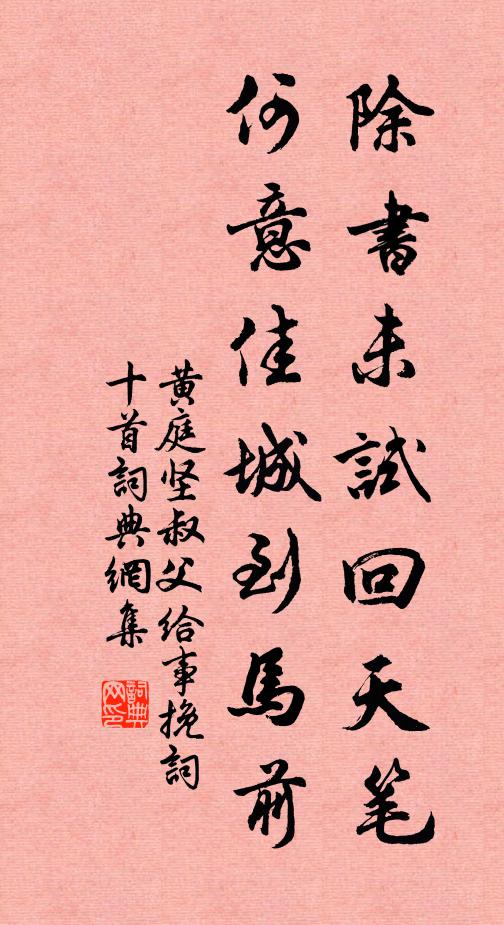 除書未試回天笔
何意佳城到馬前
黄庭坚叔父给事挽詞
十首詞典網集
詞典
网印